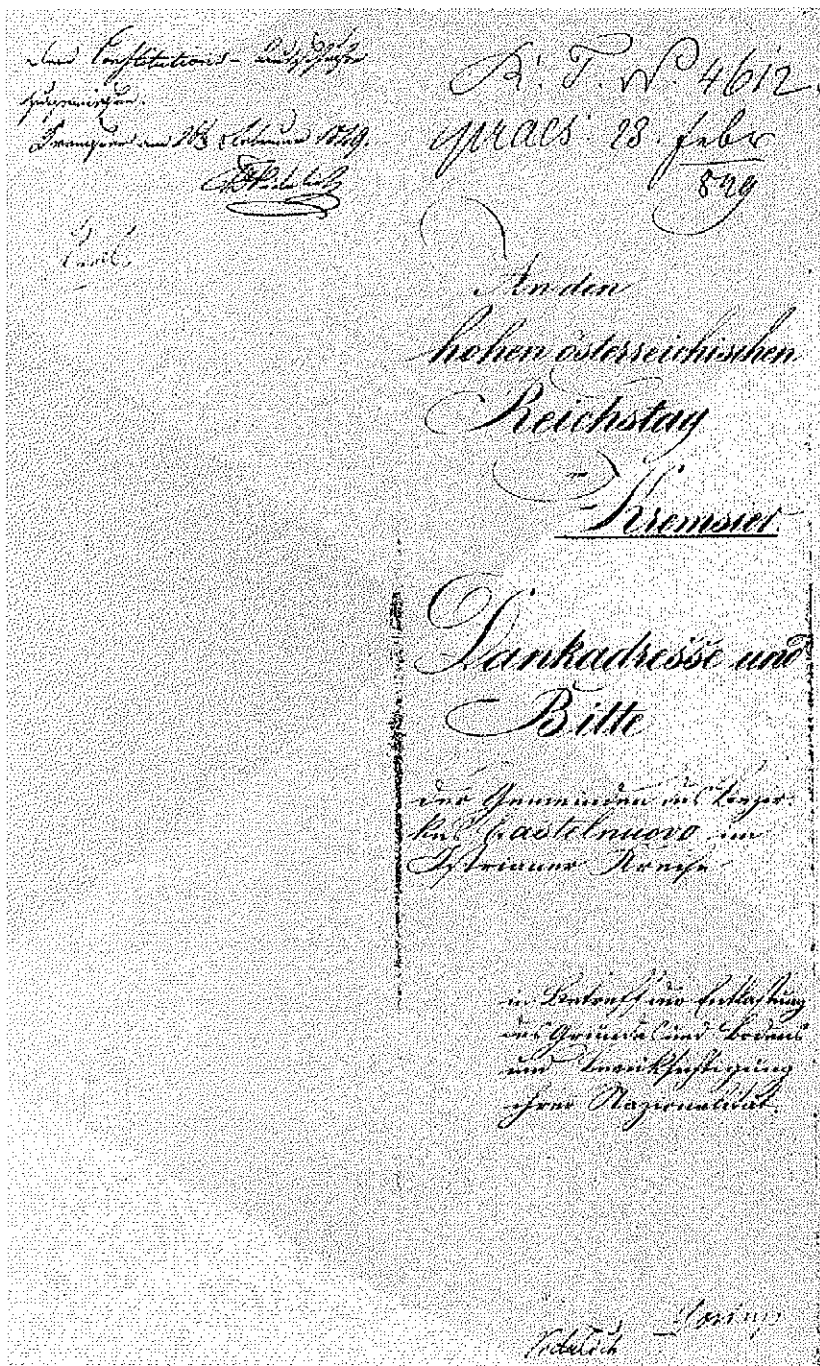 Dem Constitutions-Ausschuße
zugewiesen.
Kremsier am 28 Februar 1849.
R. T. N. 4612.
praes: 28. Febr
849
An den
hohen österreichischen
Reichstag
in
Kremsier.
Dankadresse und
Bitte
der Gemeinden des Bezir-
kes Castelnuovo im
Istrianer Kreise
in Betreff der Entlastung
des Grundes und Bodens
und Berücksichtigung
ihrer Nazionalität.